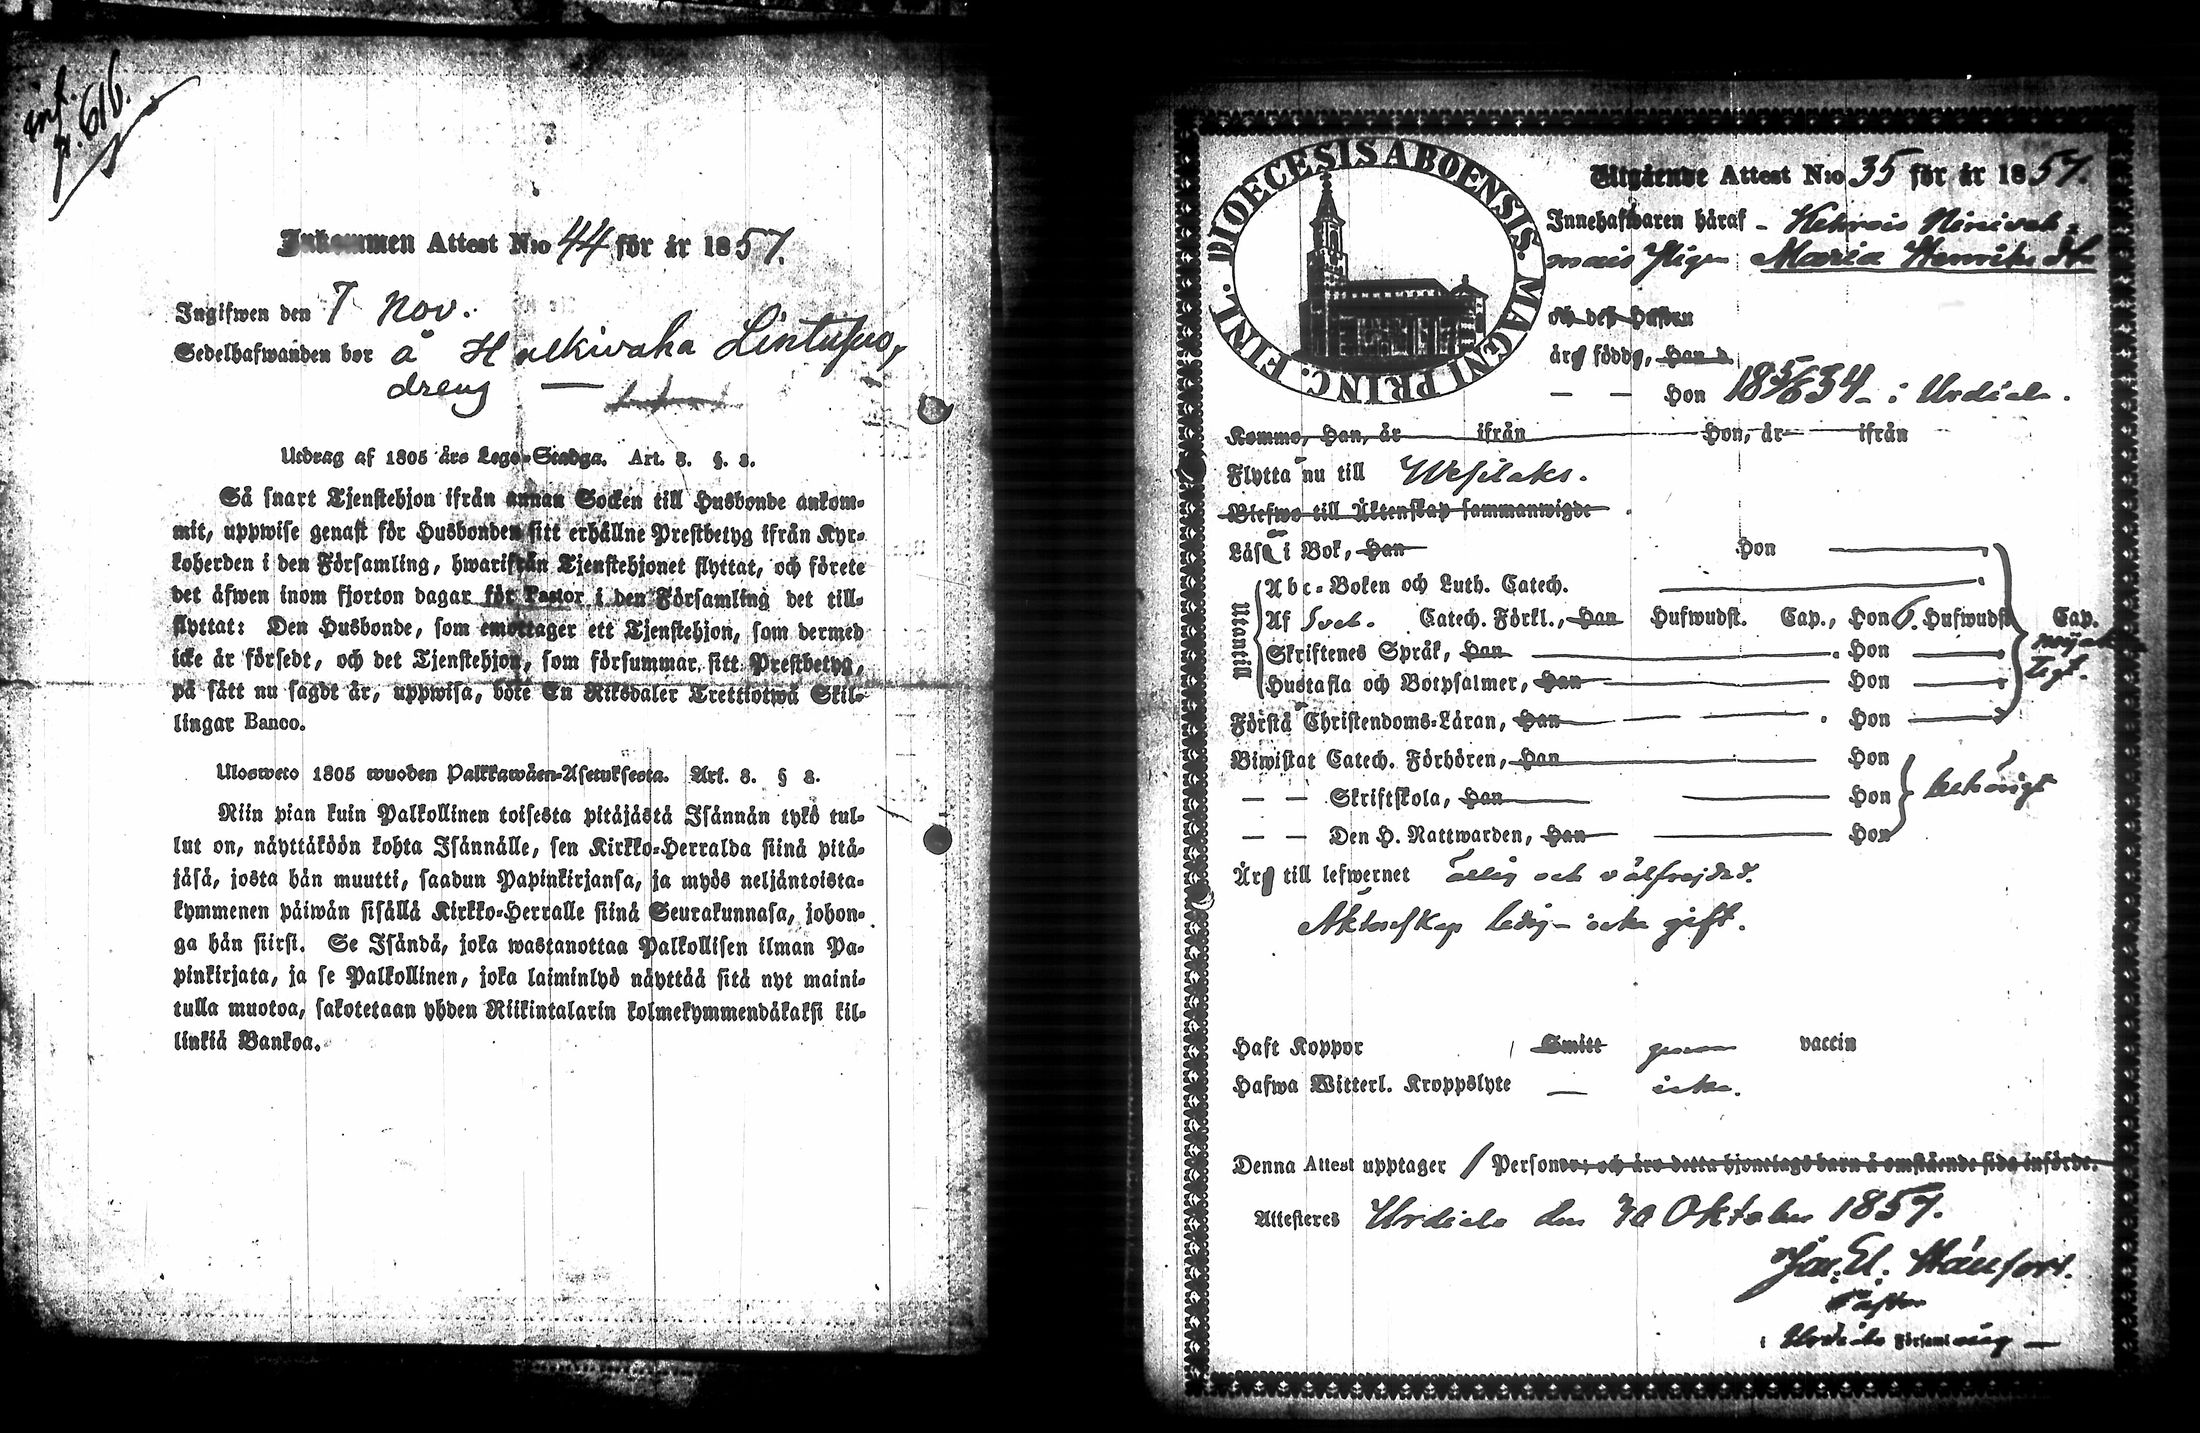 inf.
p. 616.
Inkommen Attest N:o 44 för år 1857.
Ingifwen den 7 Nov.
Sedelhafwanden bor å Hulkivaha Lintusuo,
dreng —
Utdrag af 1805 års Lego-Stadga. Art. 3. §. 3.
Så snart Tjenstehjon ifrån annan Socken till Husbonde ankom-
mit, uppwise genast för Husbonden sitt erhållne Prestbetyg ifrån Kyr-
koherden i den Församling, hwarifrån Tjenstehjonet flyttat, och förete
det äfwen inom fjorton dagar för Pastor i den Församling det till-
flyttat: Den Husbonde, som emottager ett Tjenstehjon, som dermed
icke är försedt, och det Tjenstehjon, som försummar sitt Prestbetyg,
på sätt nu sagdt är, uppwisa, böte En Riksdaler Trettiotwå Skil-
lingar Banco.
Ulosweto 1805 wuoden Palkkawäen-Asetuksesta. Art. 3. § 3.
Niin pian kuin Palkollinen toisesta pitäjästä Isännän tykö tul-
lut on, näyttäköön kohta Isännälle, sen Kirkko-Herralda siinä pitä-
jäsä, josta hän muutti, saadun Papinkirjansa, ja myös neljäntoista-
kymmenen päiwän sisällä Kirkko-Herralle siinä Seurakunnasa, johon-
ga hän siirsi. Se Isändä, joka wastanottaa Palkollisen ilman Pa-
pinkirjata, ja se Palkollinen, joka laiminlyö näyttää sitä nyt maini-
tulla muotoa, sakotetaan yhden Riikintalarin kolmekymmendäkaksi kil-
linkiä Bankoa.
DIOECESIS ABOENSIS. MAGNI PRINC. FINL.
Utgående Attest N:o 35 för år 1857.
Innehafwaren häraf
Pigan Maria Henriksdr
och deß Hustru
äro födde, Han d.
— — Hon 18 5/6 34 i Urdiala.
Kommo, Han, år ifrån Hon, år ifrån
Flytta nu till Wesilaks.
Blefwo till Äktenskap sammanwigde
Läsa i Bok, Han Hon
Utantill
Abc-Boken och Luth. Catech.
Af Sveb. Catech. Förkl., Han Hufwudst. Cap., Hon 6. Hufwudst. Cap.
Skriftenes Språk, Han Hon
Hustafla och Botpsalmer, Han Hon
Förstå Christendoms-Läran, Han — — Hon
Biwistat Catech. Förhören, Han Hon
— — Skriftskola, Han Hon behörigt
— — Den H. Nattwarden, Han Hon
Äro till lefwernet ärlig och välfrejdad.
Äktenskap ledig — icke gift.
Haft Koppor Smitt genom vaccin
Hafwa Witterl. Kroppslyte — icke.
Denna Attest upptager 1 Personer; och äro detta hjonelags barn å omstående sida införde.
Attesteras Urdiala den 30 Oktober 1857.
Pastor
i Urdiala Församling —